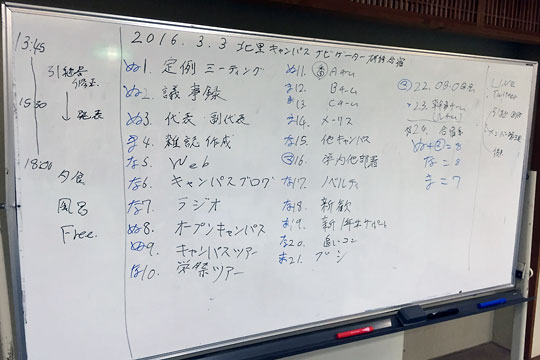 2016.3.3 北里キャンパスナビゲーター研修合宿
13:45
引継書
発表
15:30
18:00
夕食
風呂
Free.
ぬ1. 定例ミーティング
ぬ2. 議事録
ぬ3. 代表・副代表
ま4. 雑誌作成
な5. Web
な6. キャンパスブログ
な7. ラジオ
ぬ8. オープンキャンパス
ぬ9. キャンパスツアー
な10. 栄祭ツアー
ぬ11. Aチーム
ま12. Bチーム
ま13. Cチーム
ま14. メークス
な15. 他キャンパス
16. 学内他部署
な17. ノベルティ
な18. 新歓
ま19. 新1年生サポート
な20. 追いコン
ま21. ブーン
22. OB.OG
な24. 合宿
な = 8
ま = 7
LINE
Twitter